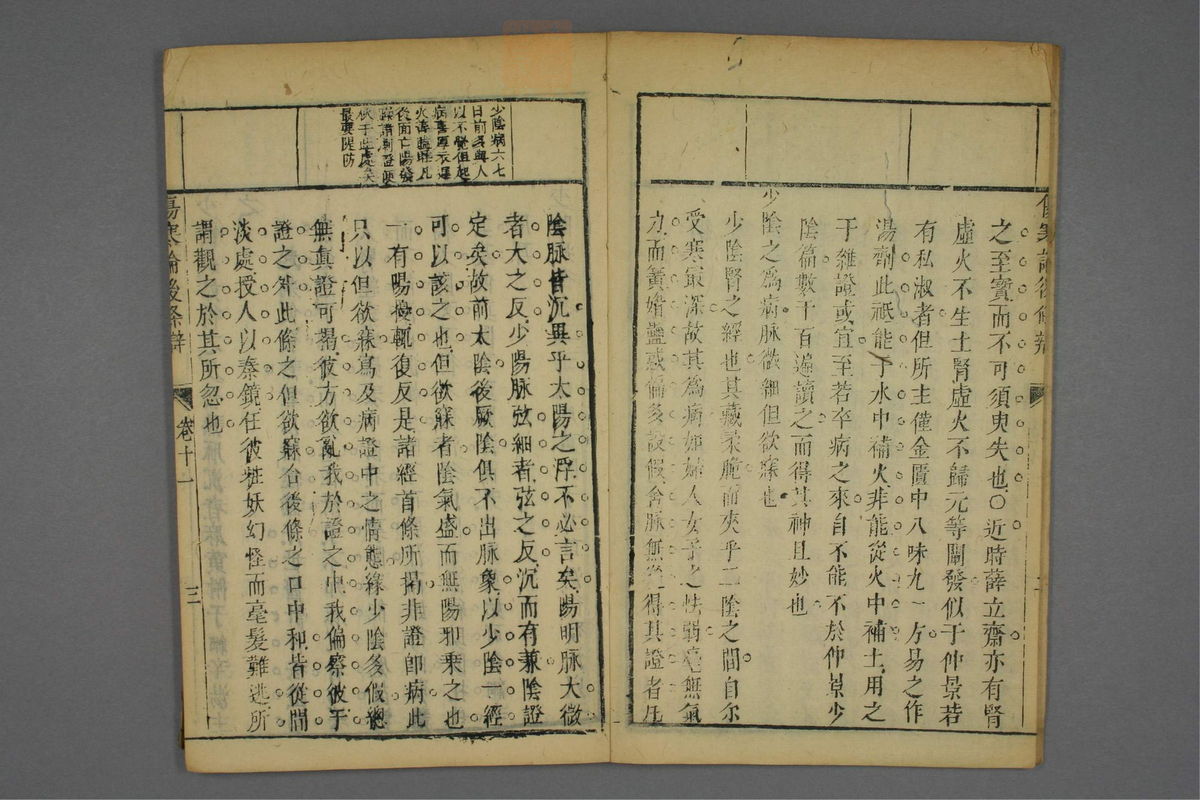 之至寶而不可須臾失也○近時薛立齋亦有腎
虛火不生土腎虛火不歸元等闡發似于仲景若
有私淑者但所主僅金匱中八味丸一方易之作
湯劑此祇能于水中補火非能從火中補土用之
于雜證或宜至若卒病之來自不能不於仲景少
陰篇數千百遍讀之而得其神且妙也
少陰之為病脈微細但欲寐也
少陰腎之經也其藏最脆而夾乎二陰之間自尔
受寒最深故其為病如婦人女子之怯弱毫無氣
力而簧婚蠱惑偏多設假舍脈無從得其證者在
傷寒論後條辨
二
少陰病六七
日前多與人
以不覺但起
病喜厚衣近
火善瞌睡凡
後面亡陽發
躁諸劇證便
伏于此處矣
最要隄防
陰脈皆沉異乎太陽之浮不必言矣陽明脈大微
者大之反少陽脈弦細者弦之反沉而有兼陰證
定矣故前太陰後厥陰俱不出脈象以少陰一經
可以該之也但欲寐者陰氣盛而無陽邪乘之也
一有陽擾輒復反是諸經首條所揭非證即病此
只以但欲寐寫及病證中之情態緣少陰多假總
無真證可揭彼方欲亂我於證之中我偏察彼于
證之外此條之但欲寐合後條之口中和皆從閒
淡處授人以秦鏡任彼粧妖幻怪而毫髮難逃所
謂觀之於其所忽也
傷寒論後條辨
卷十一
三